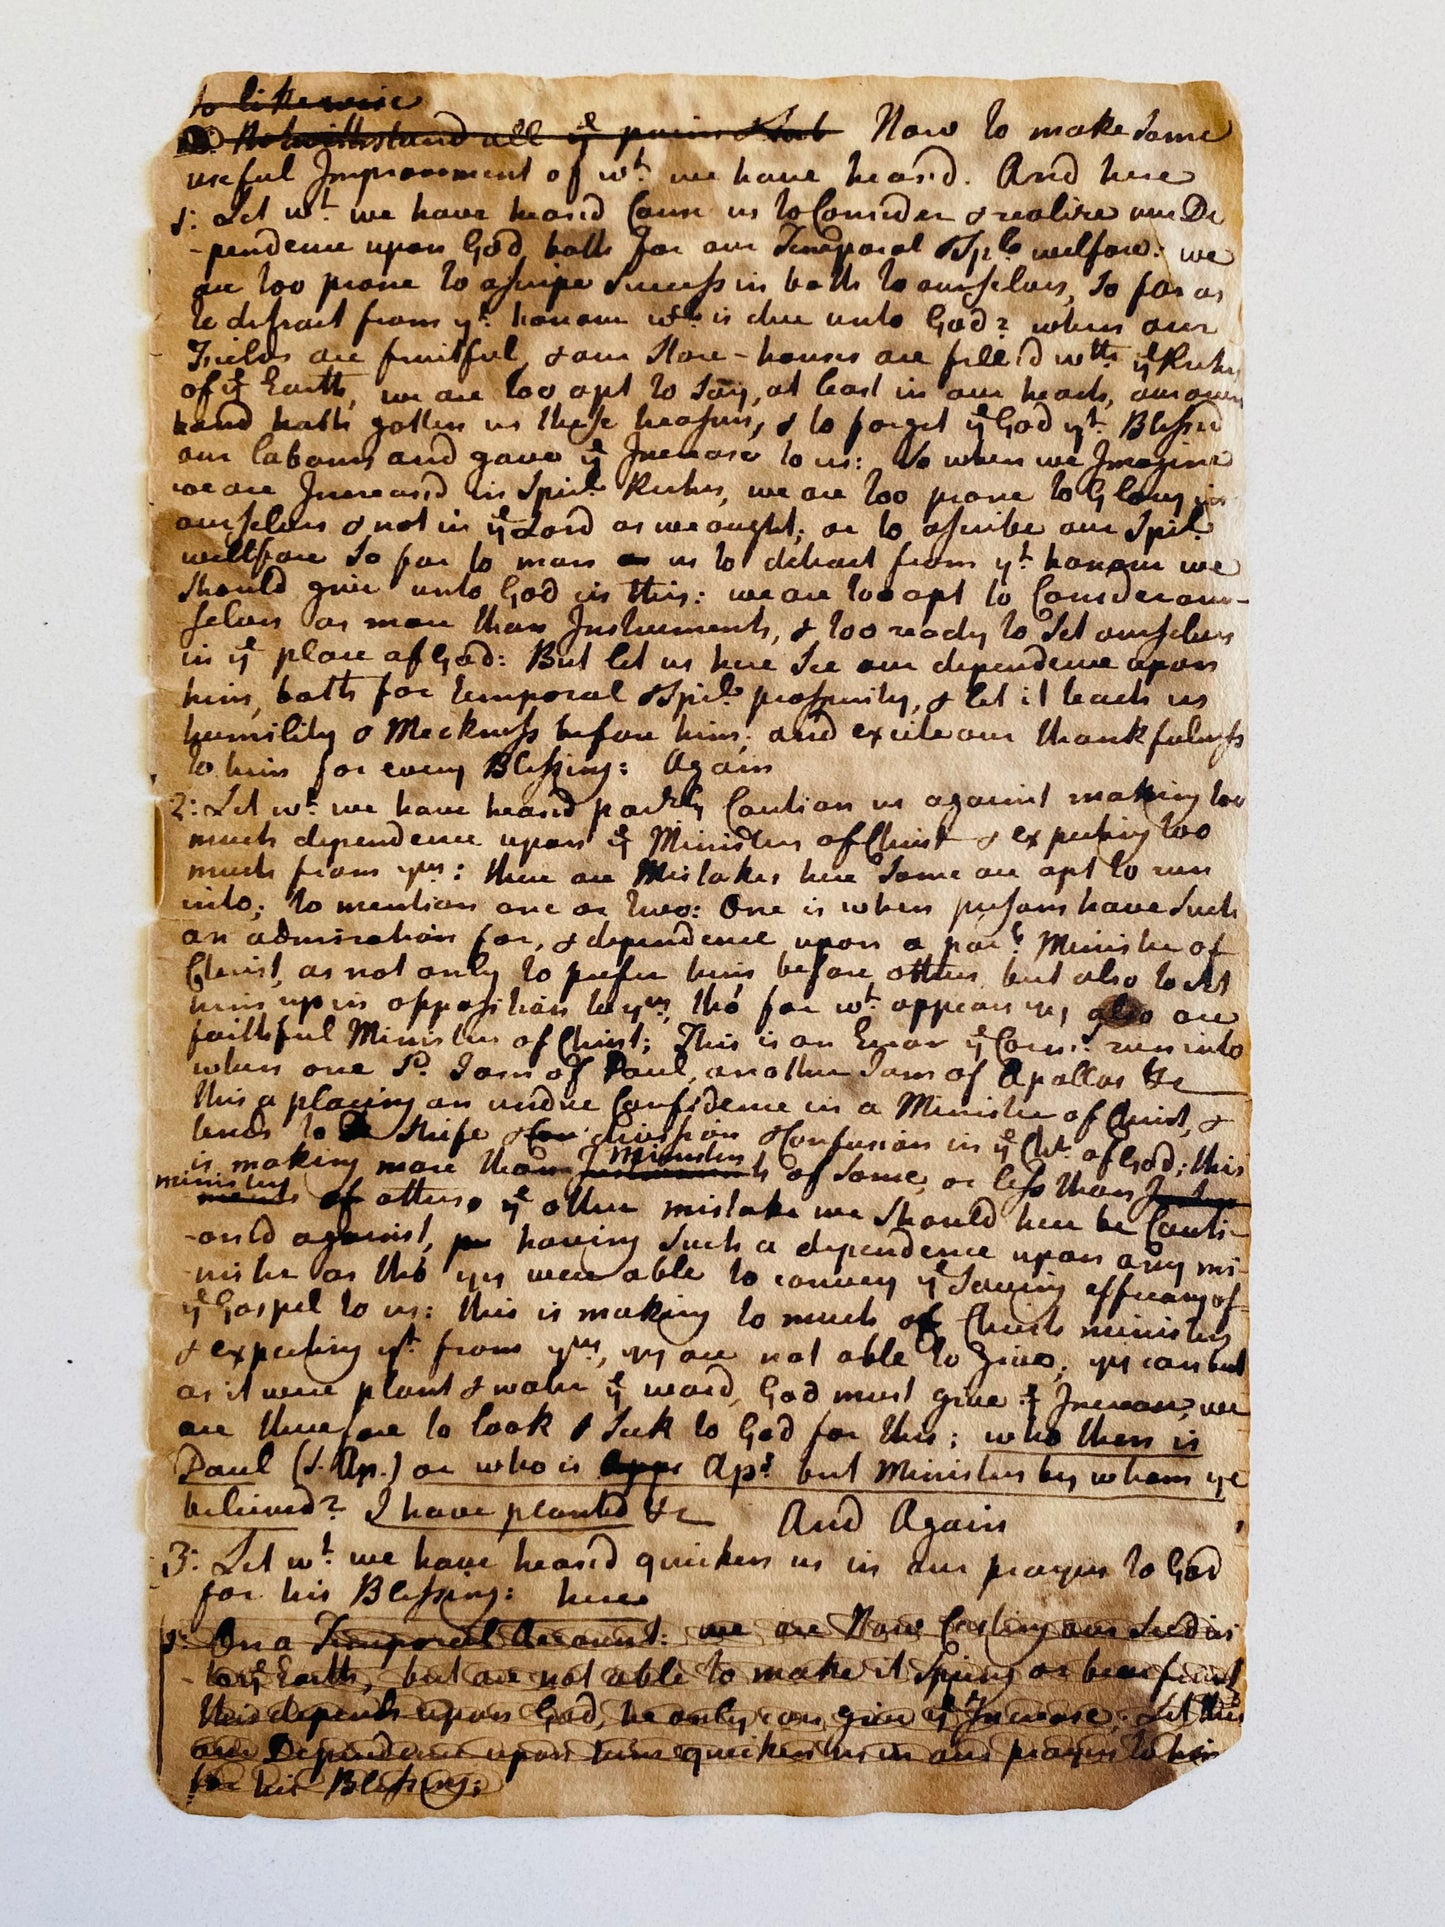 so likewise
Notwithstand all yͤ pains & Now to make some
useful Improvement of wᵗ we have heard. And here
1: Let wᵗ we have heard Cause us to Consider & realize our De
-pendence upon God both for our Temporal & Spˡ welfare: we
are too prone to ascripe Success in both to ourselves, so far as
to detract from yᵗ honour wᶜʰ is due unto God? when our
Fields are fruitful, & our Store-houses are fill'd wᵗʰ yͤ Riches
of yͤ Earth, we are too apt to say, at least in our hearts, our own
hand hath gotten us these treasures, & to forget yͤ God yᵗ Blessed
our labours and gave yͤ Increase to us: So when we Imagine
we are Increased in Spirˡ Riches, we are too prone to Glory in
ourselves & not in yͤ Lord as we ought; or to ascribe our Spirˡ
wellfare so far to man or us to detract from yᵗ honour we
should give unto God in this: we are too apt to Consider our-
-selves as more than Instruments, & too ready to set ourselves
in yͤ place of God: But let us here see our dependence upon
him, both for temporal & Spirˡ prosperity, & let it teach us
humility & Meekness before him; and excite our thankfulness
to him for every Blessing: Again
2: Let wᵗ we have heard partly Caution us against making too
much dependence upon yͤ Ministers of Christ & expecting too
much from yᵐ: there are Mistakes here some are apt to run
into; to mention one or two: One is when persons have such
an admiration for, & dependence upon a parᵗ Minister of
Christ, as not only to prefer him before others but also to set
him up in opposition to yᵐ, tho' for wᵗ appears yy also are
faithful Ministers of Christ; This is an Error yͤ Corin: run into
when one sᵈ I am of Paul, another I am of Apollos &c
this a placing an undue Confidence in a Minister of Christ, &
tends to strife & Con division & Confusion in yͤ Chʰ of God; this
is making more than Ministers Instruments of some, or less than Instru
ministers
ments of others. yͤ other mistake we should here be Cauti-
-on'd against, having such a dependence upon any mi-
-nister as tho' yy were able to convey yͤ Saving efficacy of
yͤ Gospel to us: this is making to much of Christs ministers
& expecting yᵗ from yᵐ, yy are not able to give; yy can but
as it were plant & water yͤ word, God must give yͤ Increase, we
are therefore to look & seek to God for this; who then is
Paul (S. Ap.) or who is Appo Apˢ but Ministers by whom ye
believed? I have planted &c And Again
3: Let wᵗ we have heard quicken us in our prayers to God
for his Blessing: here
1: On a Temporal Account: we are Now Casting our Seed in
-to yͤ Earth, but are not able to make it Spring or bear fruit
this depends upon God, he only can give yͤ Increase; Let this
our Dependence upon him quicken us in our prayers to him
for his Blessing: